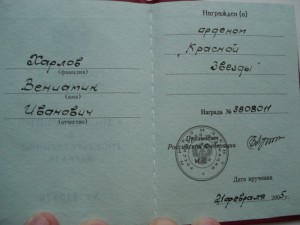 Харлов
(фамилия)
Вениамин
(имя)
Иванович
(отчество)
Награжден (а)
орденом
"Красной
Звезды"
Награда № 3808011
Президент
Российской Федерации
Дата вручения
21 февраля 2005 г